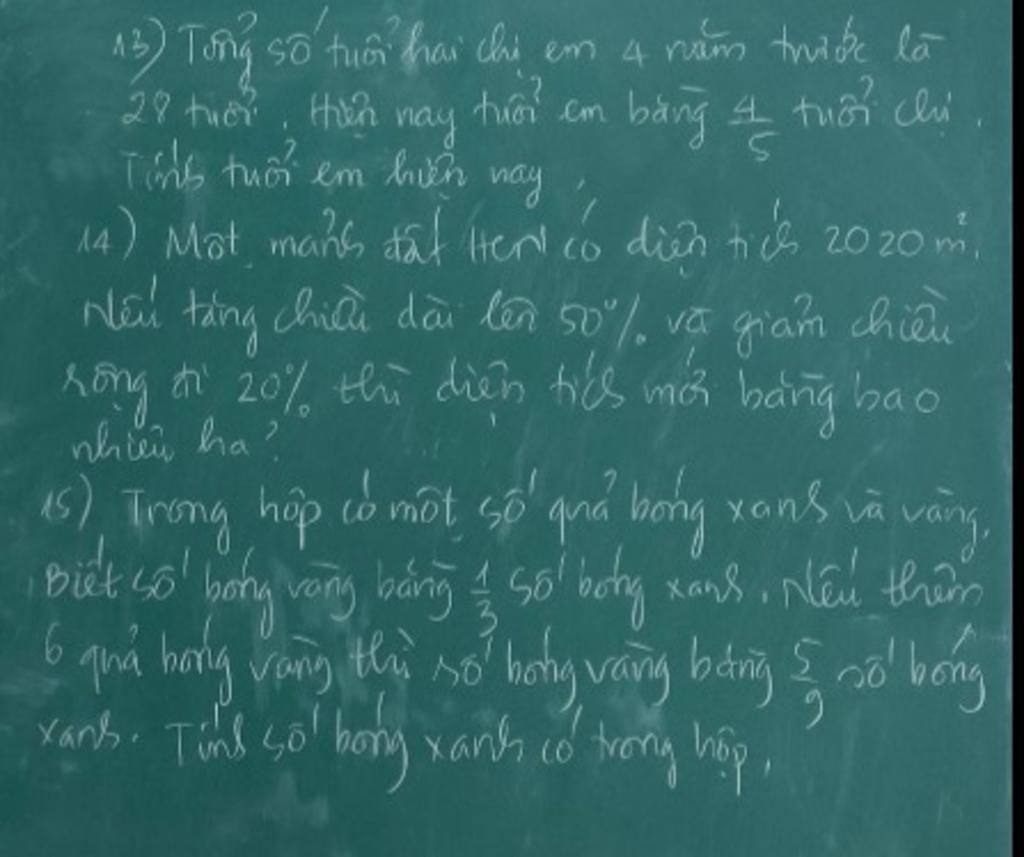 13) Tổng số tuổi hai chị em 4 năm trước là
28 tuổi. Hiện nay tuổi em bằng 4/5 tuổi chị.
Tính tuổi em hiện nay.
14) Một mảnh đất HCN có diện tích 2020 m².
Nếu tăng chiều dài lên 50% và giảm chiều
rộng đi 20% thì diện tích mới bằng bao
nhiêu ha?
15) Trong hộp có một số quả bóng xanh và vàng.
Biết số bóng vàng bằng 1/3 số bóng xanh. Nếu thêm
6 quả bóng vàng thì số bóng vàng bằng 5/9 số bóng
xanh. Tính số bóng xanh có trong hộp.